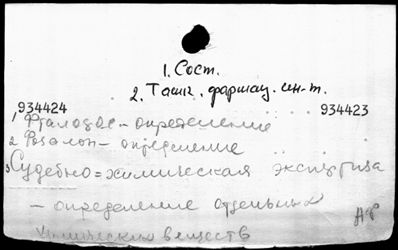 1. Сост.
2. Ташк. фармац. ин-т.
934424 934423
1 Фталазол – определение
2 Фозалон – определение
3 Судебно=химическая экспертиза
– определение отдельных
химических веществ